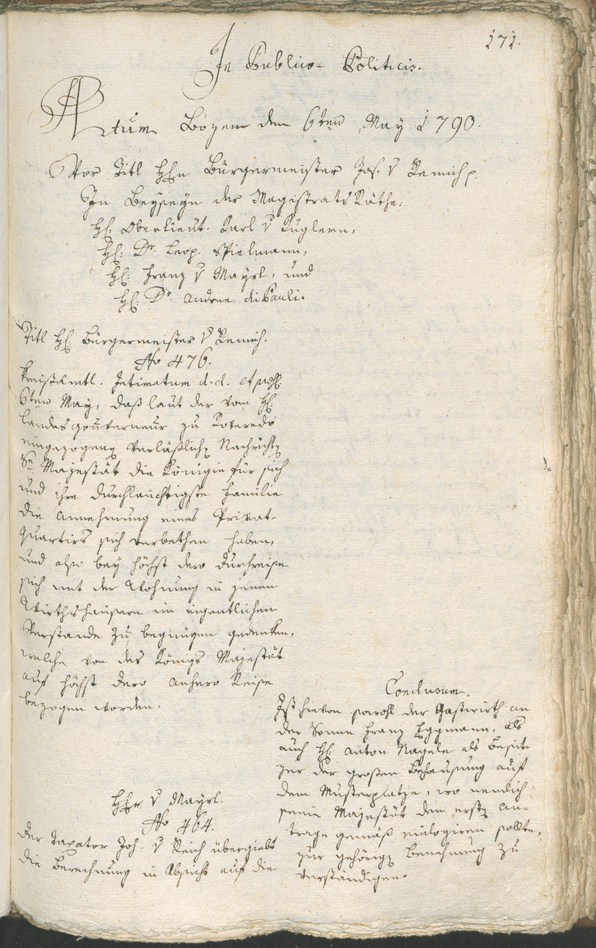 171.
In Publico-Politicis.
Actum Bozen den 6ten May 1790.
Vor Titl Hhn Bürgermeister Jos. v Remich
In Beyseyn der Magistrats Räthe,
H: Oberlieut. Karl v Züglern,
H: Dr. Leop. Spielmann,
H: Franz v Mayrl, und
H: Dr. Andree di Pauli.
Titl H: Bürgermeister v Remich.
No 476.
Kreisämtl. Intimatum d.d. et
6ten May, daß laut der vom H:
Landesgouverneur zu Roveredo
eingezogenen verläßlichen Nachrichten
Sr Majestät die Königin für sich
und ihre durchlauchtigste Familie
die Annehmung eines Privat-
quartiers sich verbethen haben,
und also bey höchst dero Durchreise
sich mit der Wohnung in jenen
Wirthshäusern im eigentlichen
Verstande zu begnügen gedenken,
welche von des Königs Majestät
auf höchst dero anhero Reise
bezogen worden.
Conclusum.
Ist hievon sowohl der Gastwirth an
der Sonne Franz Eggmann, als
auch H: Anton Nagele als Besit-
zer der großen Behausung auf
dem Musterplatze, wo nemlich
seine Majestät dem ersten An-
trage gemäß einlogiren sollte,
zur gehörigen Benehmung zu
verständigen.
Hhr v Mayrl.
No 464.
Der Taxator Joh. v Reich übergiebt
die Berechnung in Absicht auf die